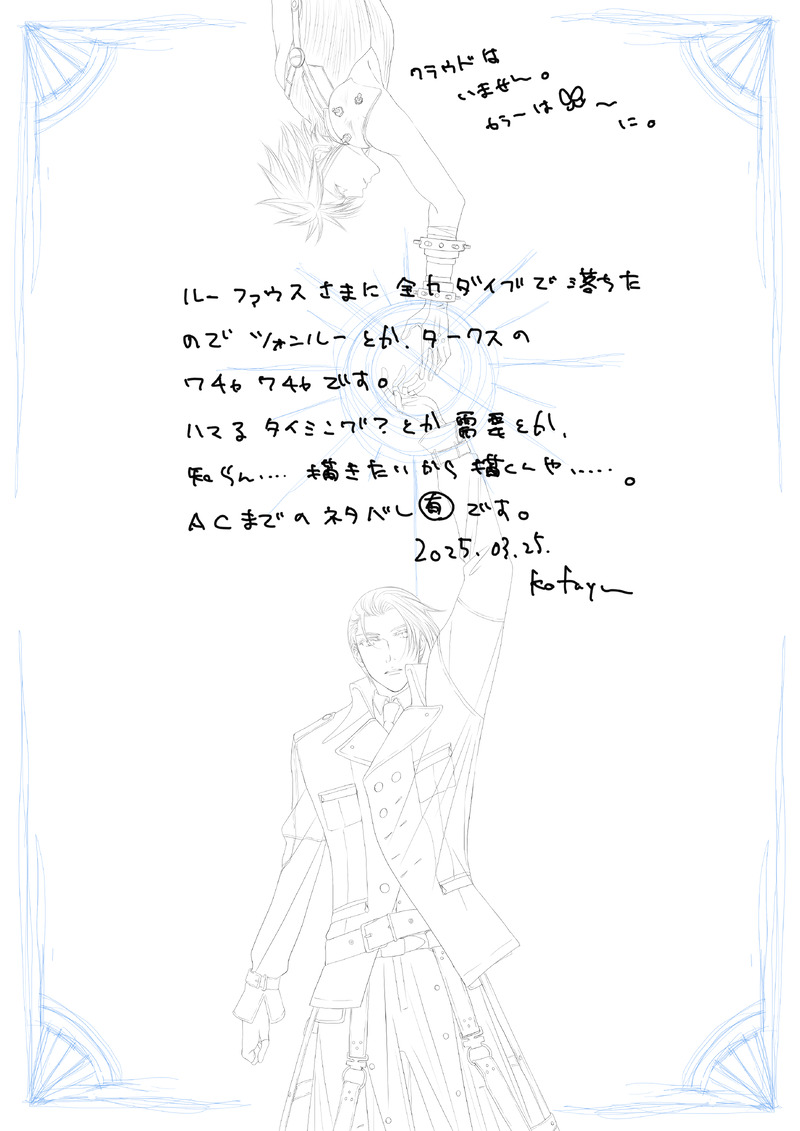 クラウドは
いません。
もう一は～
に。
ルーファウスさまに全力ダイブで落ちた
のでツォンルーとか、タークスの
ワチャワチャです。
ハマるタイミング?とか需要とか、
知らん…. 描きたいから描くんや…..。
ACまでのネタバレ有です。
2025.03.25.